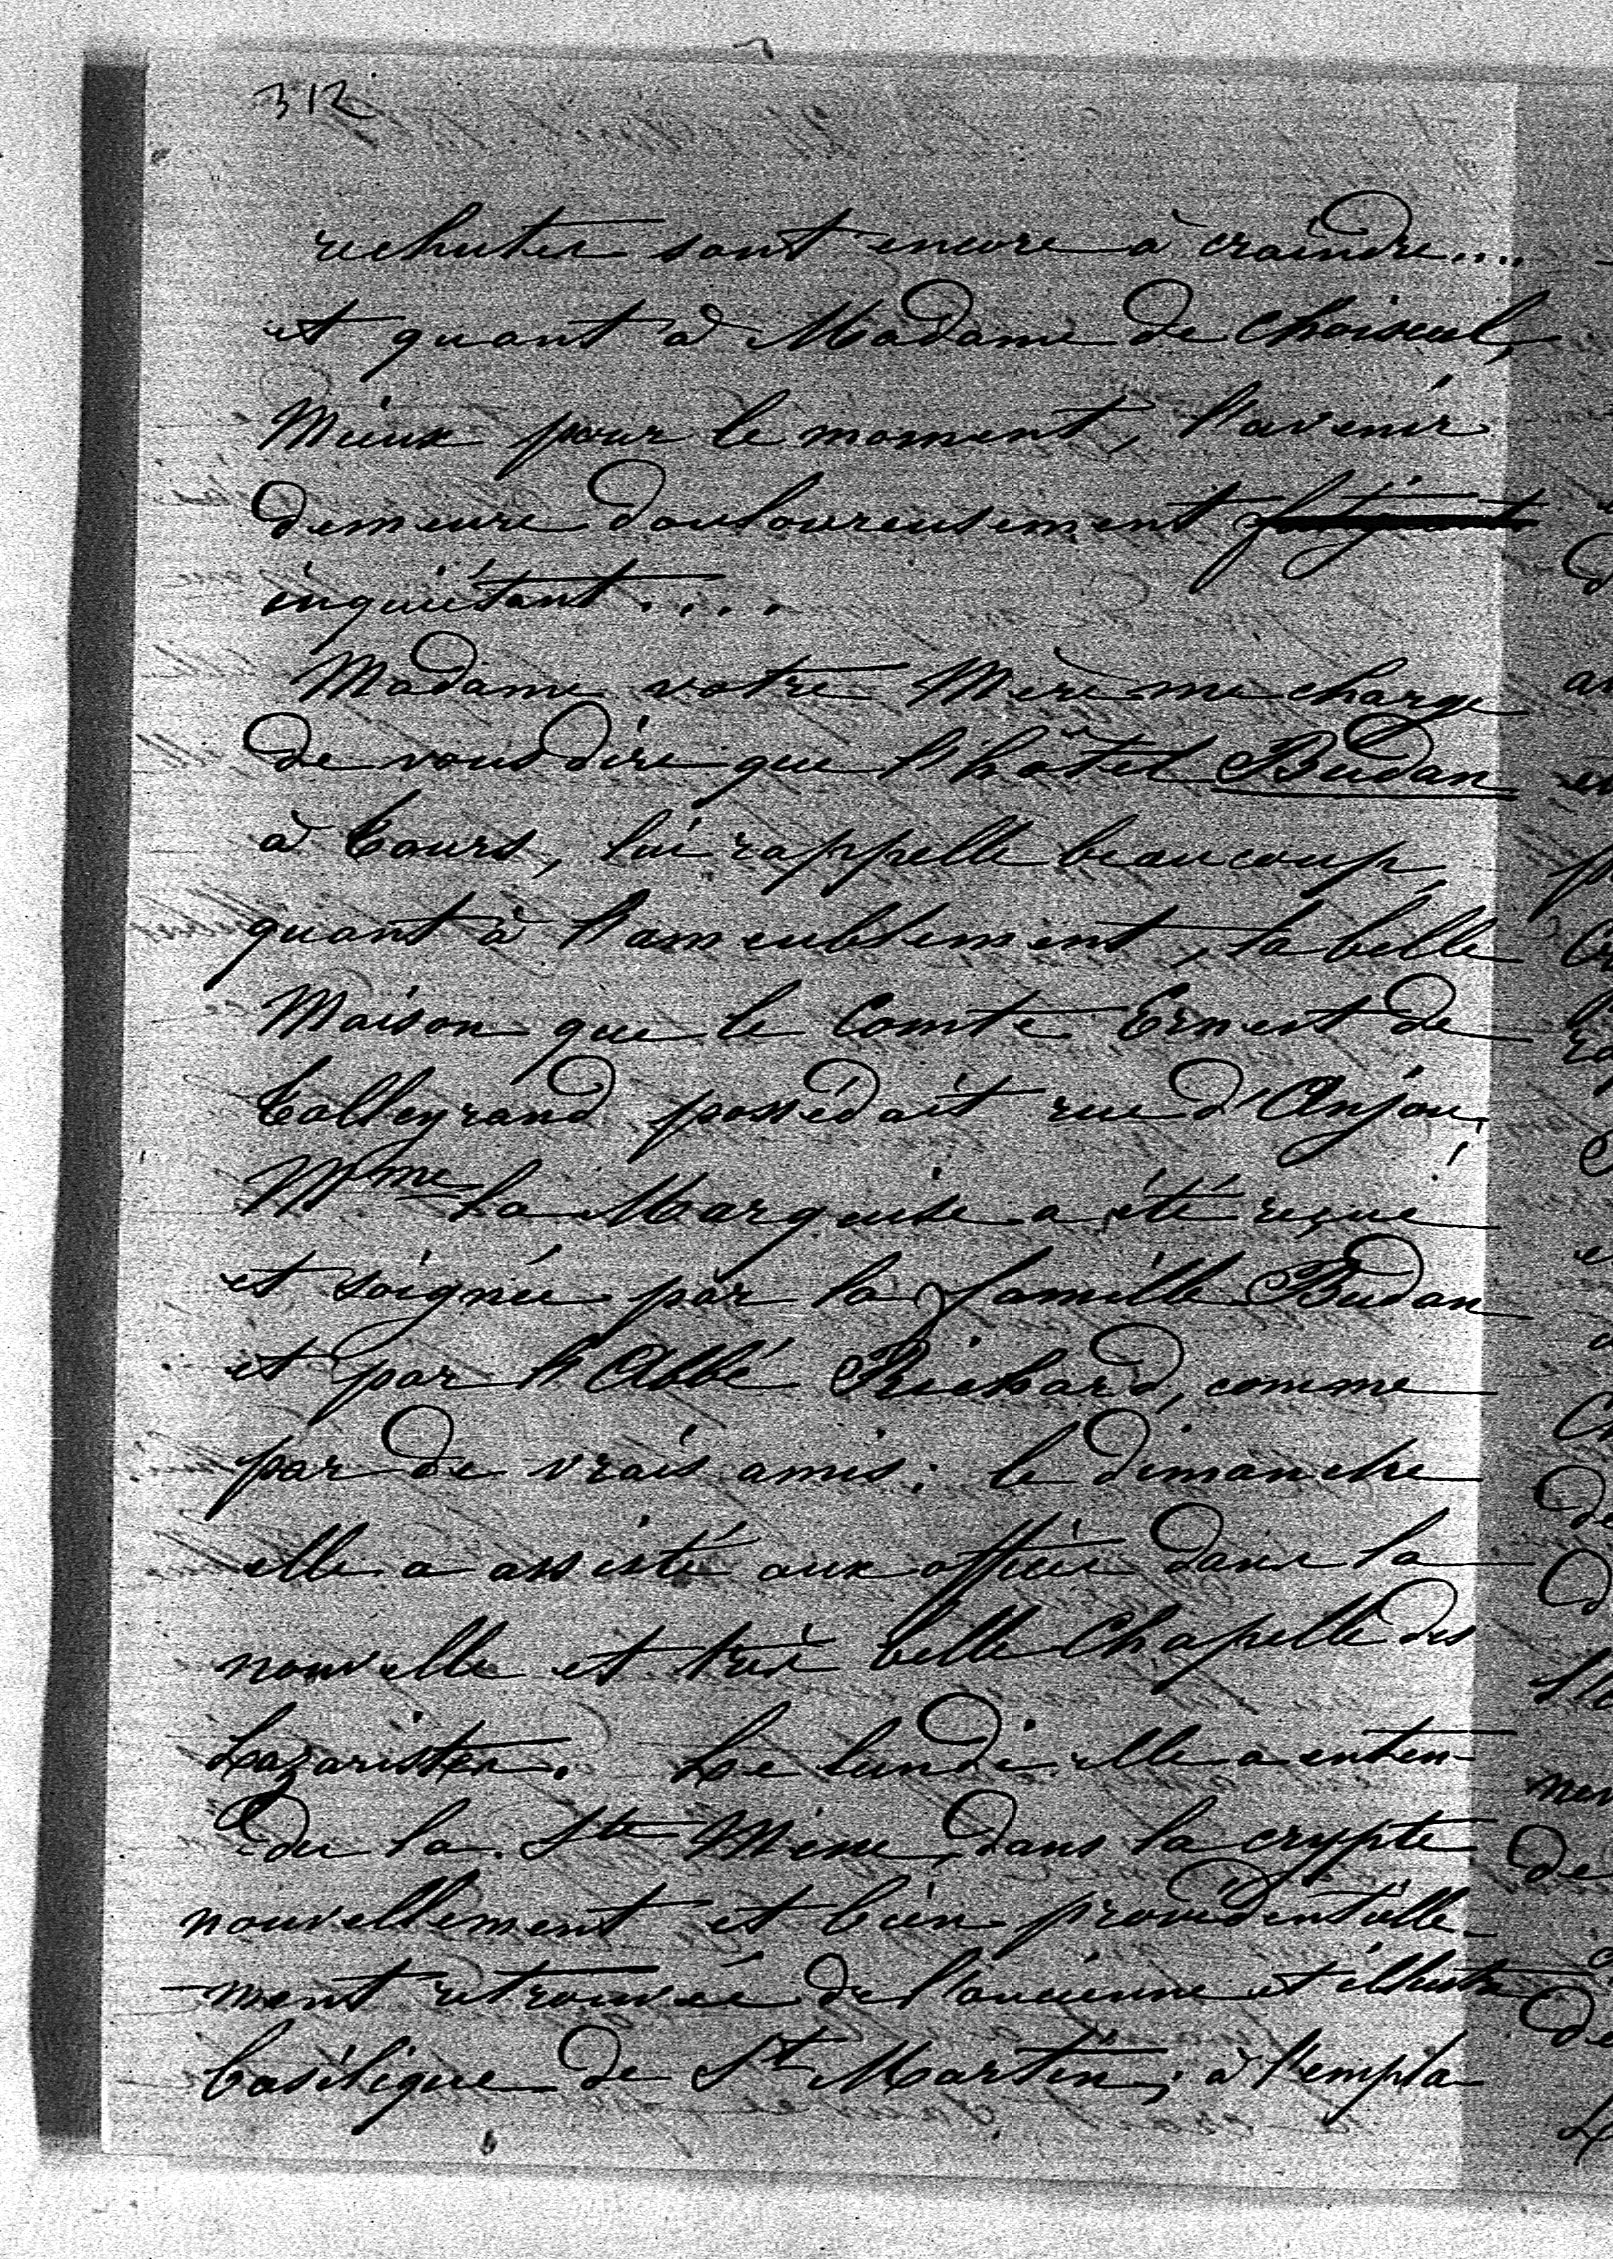 312
rechutes sont encore à craindre....
et quant à Madame de Choiseul,
Mieux pour le moment, l'avenir
demeure douloureusement
inquiétant....
Madame votre Mère me charge
de vous dire que l'hôtel Budan
à Tours, lui rappelle beaucoup
quant à l'ameublement, la belle
Maison que le Comte Ernest de
Talleyrand possédait rue d'Anjou,
Mme La Marquise a été reçue
et soignée par la famille Budan
et par l'Abbé Richard, comme
par de vrais amis: le dimanche
elle a assisté aux offices dans la
nouvelle et très belle Chapelle des
Lazaristes. Le lundi elle a enten-
du la Ste Messe, dans la crypte
nouvellement et bien providentielle-
ment retrouvée de l'ancienne et illustre
basilique de St Martin; à l'empla